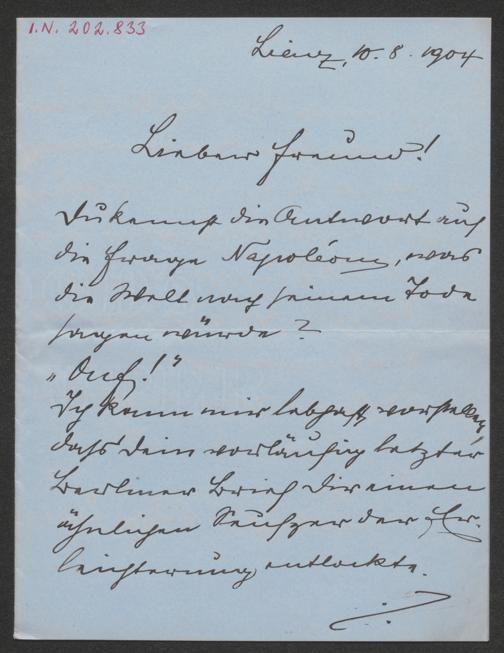 I.N. 202.833
Lienz, 10.8.1904
Lieber Freund!
Du kennst die Antwort auf
die Frage Napoléons, was
die Welt nach seinem Tode
sagen würde?
„Ouf!"
Ich kann mir lebhaft vorstellen,
dass dein vorläufig letzter
Berliner Brief dir einen
ähnlichen Seufzer der Er-
leichterung entlockte.